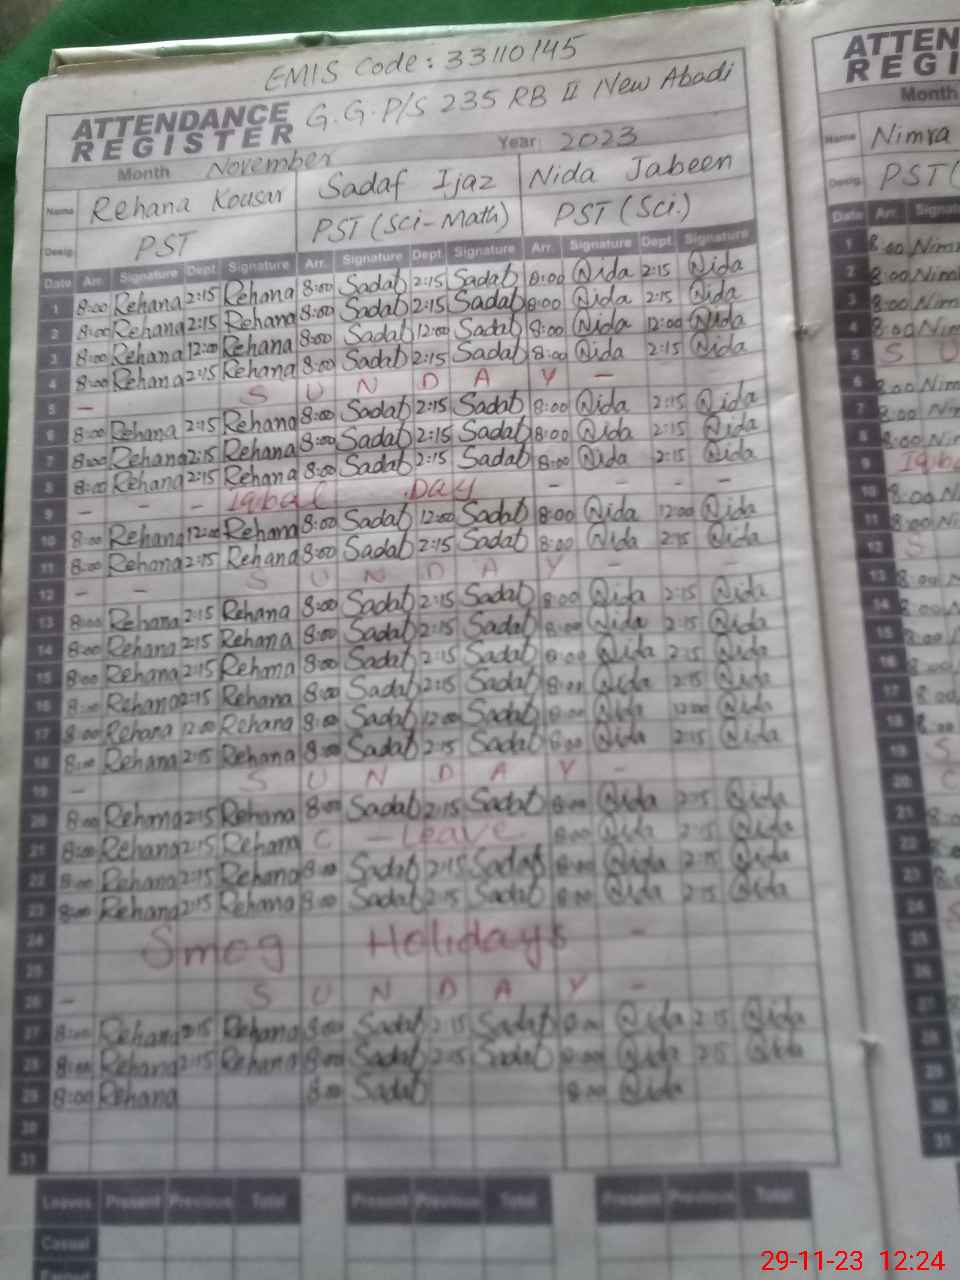 EMIS Code: 33110145
ATTENDANCE REGISTER G.G.P/S 235 RB II New Abadi
Month November Year: 2023
Name Rehana Kousar Sadaf Ijaz Nida Jabeen
Desig. PST PST (Sci-Math) PST (Sci.)
Date Arr. Signature Dept. Signature Arr. Signature Dept. Signature Arr. Signature Dept. Signature
1 8:00 Rehana 2:15 Rehana 8:00 Sadaf 2:15 Sadaf 8:00 Nida 2:15 Nida
2 8:00 Rehana 2:15 Rehana 8:00 Sadaf 2:15 Sadaf 8:00 Nida 2:15 Nida
3 8:00 Rehana 12:00 Rehana 8:00 Sadaf 12:00 Sadaf 8:00 Nida 12:00 Nida
4 8:00 Rehana 2:15 Rehana 8:00 Sadaf 2:15 Sadaf 8:00 Nida 2:15 Nida
5 - S U N D A Y -
6 8:00 Rehana 2:15 Rehana 8:00 Sadaf 2:15 Sadaf 8:00 Nida 2:15 Nida
7 8:00 Rehana 2:15 Rehana 8:00 Sadaf 2:15 Sadaf 8:00 Nida 2:15 Nida
8 8:00 Rehana 2:15 Rehana 8:00 Sadaf 2:15 Sadaf 8:00 Nida 2:15 Nida
9 - - - Iqbal Day - - - -
10 8:00 Rehana 12:00 Rehana 8:00 Sadaf 12:00 Sadaf 8:00 Nida 12:00 Nida
11 8:00 Rehana 2:15 Rehana 8:00 Sadaf 2:15 Sadaf 8:00 Nida 2:15 Nida
12 - - S U N D A Y - - -
13 8:00 Rehana 2:15 Rehana 8:00 Sadaf 2:15 Sadaf 8:00 Nida 2:15 Nida
14 8:00 Rehana 2:15 Rehana 8:00 Sadaf 2:15 Sadaf 8:00 Nida 2:15 Nida
15 8:00 Rehana 2:15 Rehana 8:00 Sadaf 2:15 Sadaf 8:00 Nida 2:15 Nida
16 8:00 Rehana 2:15 Rehana 8:00 Sadaf 2:15 Sadaf 8:00 Nida 2:15 Nida
17 8:00 Rehana 12:00 Rehana 8:00 Sadaf 12:00 Sadaf 8:00 Nida 12:00 Nida
18 8:00 Rehana 2:15 Rehana 8:00 Sadaf 2:15 Sadaf 8:00 Nida 2:15 Nida
19 - S U N D A Y -
20 8:00 Rehana 2:15 Rehana 8:00 Sadaf 2:15 Sadaf 8:00 Nida 2:15 Nida
21 8:00 Rehana 2:15 Rehana C - Leave 8:00 Nida 2:15 Nida
22 8:00 Rehana 2:15 Rehana 8:00 Sadaf 2:15 Sadaf 8:00 Nida 2:15 Nida
23 8:00 Rehana 2:15 Rehana 8:00 Sadaf 2:15 Sadaf 8:00 Nida 2:15 Nida
24 Smog Holidays -
25
26 - S U N D A Y -
27 8:00 Rehana 2:15 Rehana 8:00 Sadaf 2:15 Sadaf 8:00 Nida 2:15 Nida
28 8:00 Rehana 2:15 Rehana 8:00 Sadaf 2:15 Sadaf 8:00 Nida 2:15 Nida
29 8:00 Rehana 8:00 Sadaf 8:00 Nida
30
31
Leaves Present Previous Total Present Previous Total Present Previous Total
Casual
ATTEN
REGI
Month
Name Nimra
Desig. PST(
Date Arr. Signat
1 8:00 Nim
2 8:00 Nim
3 8:00 Nim
4 8:00 Nim
5 S U
6 8:00 Nim
7 8:00 Nim
8 8:00 Nim
9 Iqba
10 8:00 N
11 8:00 Ni
12 S
13 8:00 N
14 8:00
15 8:00
16 8:00
17 8:00
18 8:00
19 S
20
21 8:0
22
23
24
25
26
27
28
29
30
31
29-11-23 12:24